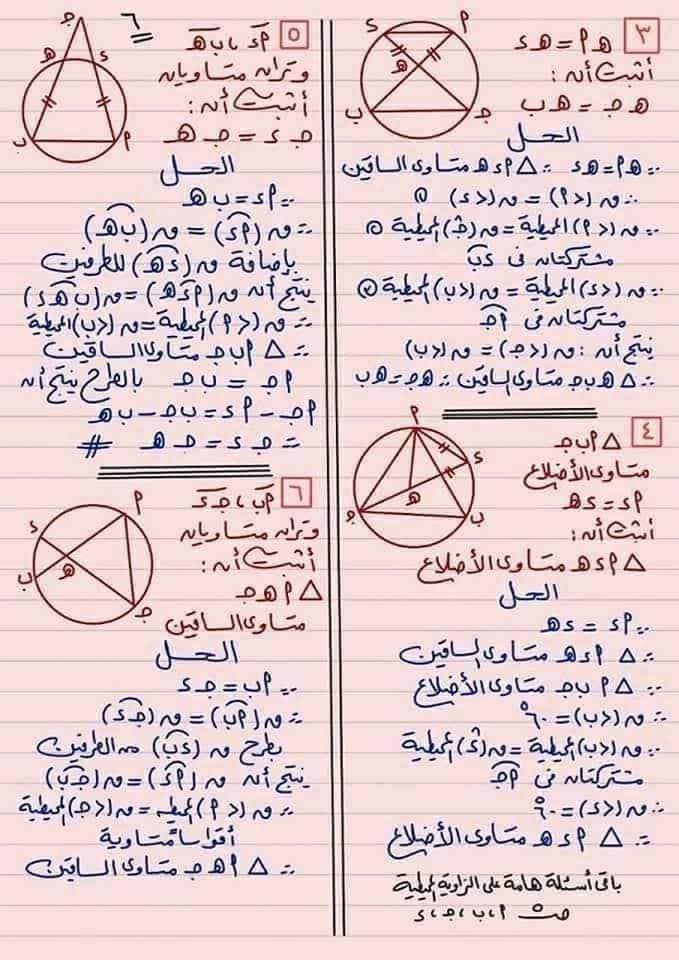 ٣ هـ م = هـ ء
أثبت أن :
هـ جـ = هـ ب
الحل
∵ هـ م = هـ ء ∴ △ م ء هـ متساوى الساقين
∴ ق (< م) = ق (< ء) ①
∵ ق (< م) المحيطية = ق (< جـ) المحيطية ②
مشتركتان فى ء ب
∵ ق (< ء) المحيطية = ق (< ب) المحيطية ③
مشتركتان فى م جـ
ينتج أن : ق (< جـ) = ق (< ب)
∴ △ هـ ب جـ متساوى الساقين ∴ هـ جـ = هـ ب
٤ △ م ب جـ
متساوى الأضلاع
م ء = ء هـ
أثبت أن :
△ م ء هـ متساوى الأضلاع
الحل
∵ م ء = ء هـ
∴ △ م ء هـ متساوى الساقين
∵ △ م ب جـ متساوى الأضلاع
∴ ق (< ب) = ٦٠°
∵ ق (< ب) المحيطية = ق (< ء) المحيطية
مشتركتان فى م جـ
∴ ق (< ء) = ٦٠°
∴ △ م ء هـ متساوى الأضلاع
باقى أسئلة هامة على الزاوية المحيطية
م ، ب ، جـ ، ء
٦
٥ م ء ، ب هـ
وتران متساويان
أثبت أن :
جـ ء = جـ هـ
الحل
∵ م ء = ب هـ
∴ ق (م ء) = ق (ب هـ)
بإضافة ق (ء هـ) للطرفين
ينتج أن ق (م ء هـ) = ق (ب هـ ء)
∴ ق (< م) المحيطية = ق (< ب) المحيطية
∴ △ م ب جـ متساوى الساقين
م جـ = ب جـ بالطرح ينتج أن
م جـ - م ء = ب جـ - ب هـ
∴ جـ ء = جـ هـ #
٦ م ب ، جـ ء
وتران متساويان
أثبت أن :
△ م هـ جـ
متساوى الساقين
الحل
∵ م ب = جـ ء
∴ ق (م ب) = ق (جـ ء)
بطرح ق (ء ب) من الطرفين
ينتج أن ق (م ء) = ق (جـ ب)
∴ ق (< م) المحيطية = ق (< جـ) المحيطية
أقواسا متساوية
∴ △ م هـ جـ متساوى الساقين